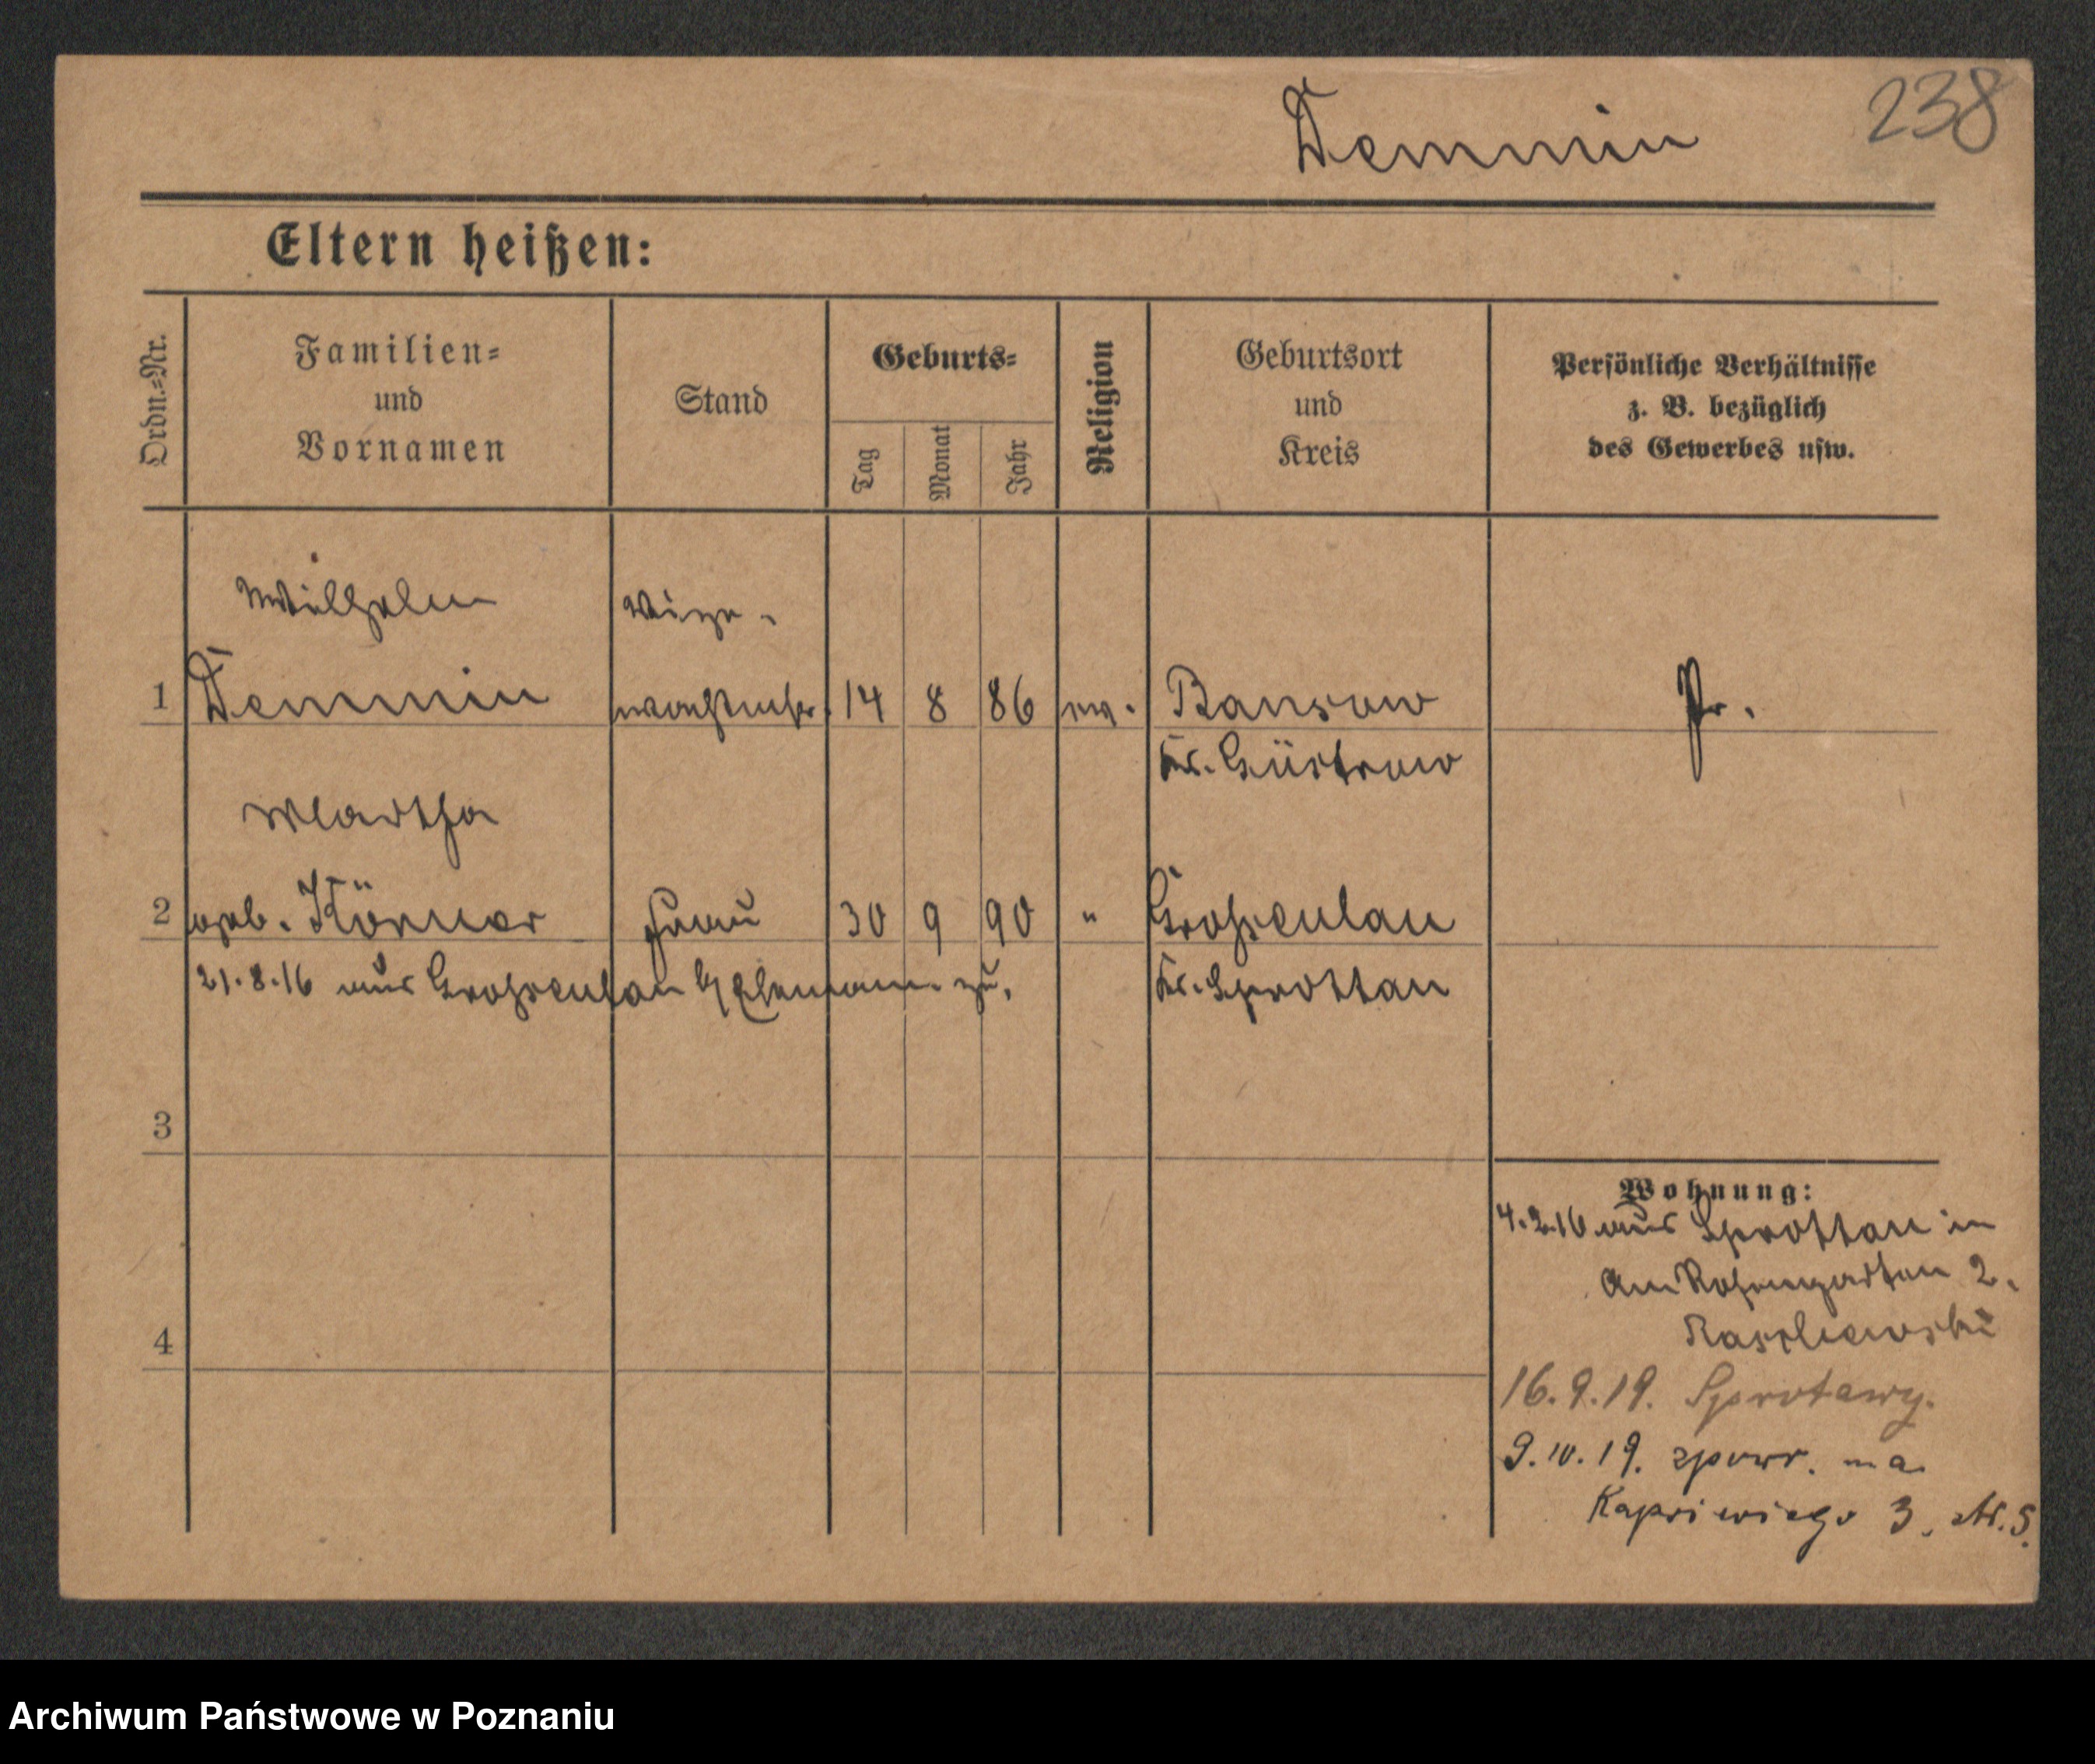 238
Demmin
Eltern heißen:
Ordn.-Nr.
Familien-
und
Vornamen
Stand
Geburts-
Tag
Monat
Jahr
Religion
Geburtsort
und
Kreis
Persönliche Verhältnisse
z. B. bezüglich
des Gewerbes usw.
Wilhelm Vize-
1 Demmin wachtmstr. 14 8 86 ev. Bansow Pr.
Kr. Güstrow
Martha
2 geb. Körner Frau 30 9 90 " Grosseulau
21.8.16 aus Grosseulau z. Ehemann zu. Kr. Sprottau
3
4
Wohnung:
4.2.16 aus Sprottau in
Am Rosengarten 2.
16.9.19. Sprotawy.
9.10.19. zpowr. na
Kapriwiego 3.
Archiwum Państwowe w Poznaniu